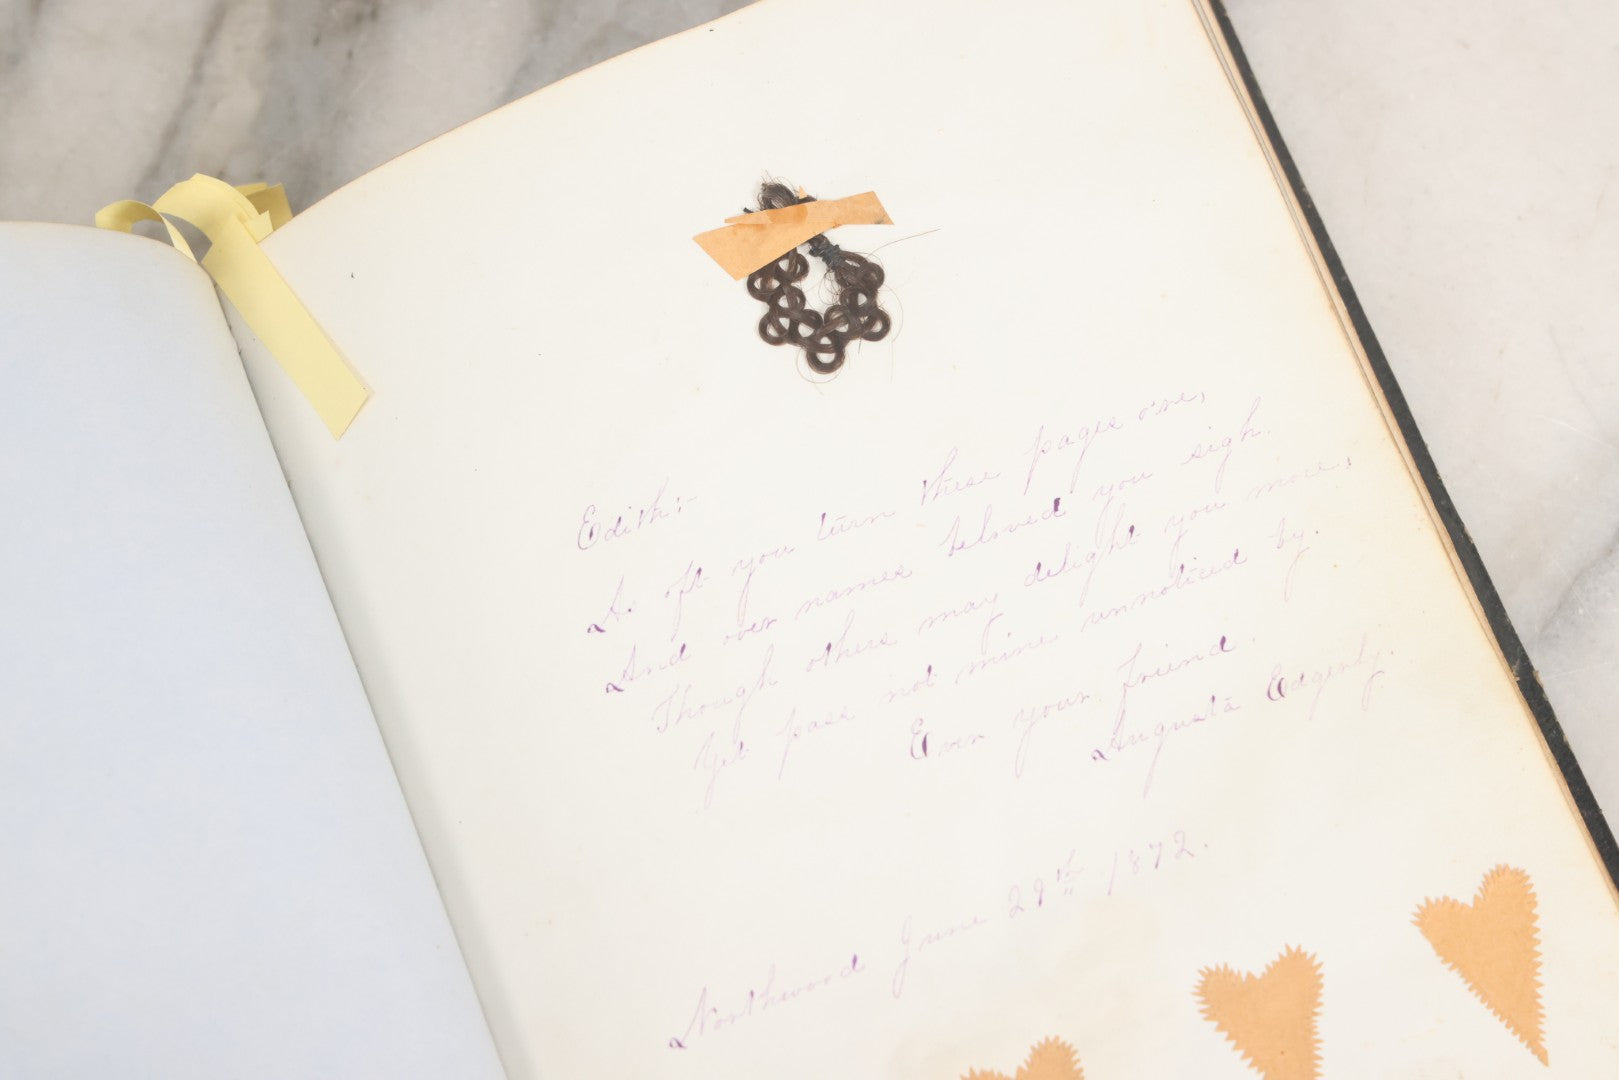 Edith:-
As oft you turn these pages o're,
And over names beloved you sigh.
Though others may delight you more,
Yet pass not mine unnoticed by.
Ever your friend.
Augusta Edgerly.
Northwood June 29th 1872.